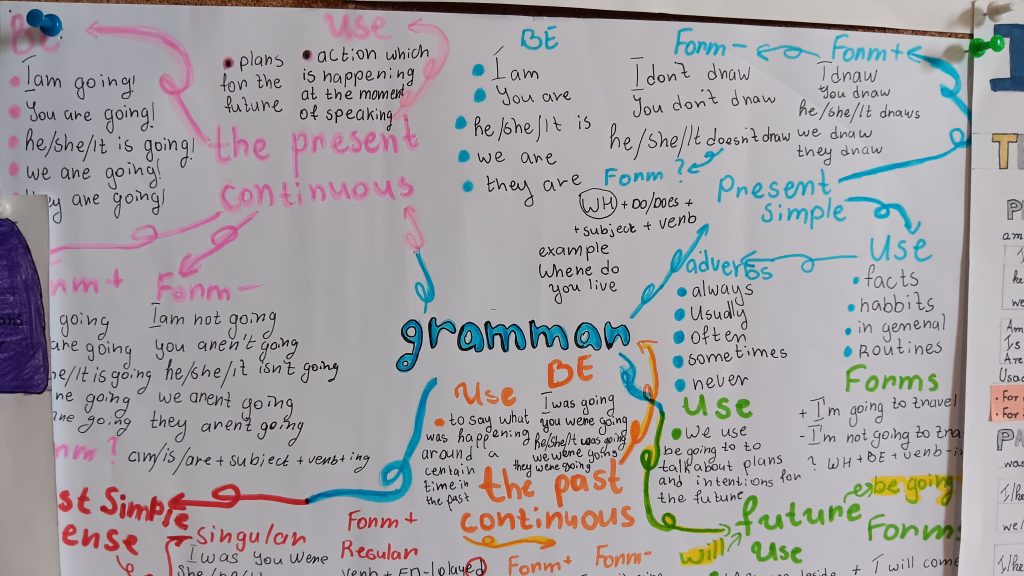 BE
I am going!
You are going!
he/she/It is going!
we are going!
they are going!
Use
plans
for the
future
action which
is happening
at the moment
of speaking
the present
continuous
Form -
I am not going
you aren't going
he/she/it isn't going
we arent going
they aren't going
going
are going
he/It is going
going
are going
am/is/are + subject + verb + ing
BE
I am
You are
he/she/It is
we are
they are
Form -
I don't draw
You don't draw
he/she/It doesn't draw
Form +
I draw
You draw
he/she/It draws
we draw
they draw
Form ?
WH + DO/DOES +
+ subject + verb
example
Where do
you live
Present
simple
Use
facts
habbits
in general
Routines
adverbs
always
Usudly
often
sometimes
never
grammar
Use
to say what
was happening
around a
certain
time in
the past
BE
I was going
you were going
he/she/It was going
we were going
they were going
the past
continuous
Form +
Form -
Use
We use
be going to to
talk about plans
and intentions for
the future
Forms
+ I'm going to travel
- I'm not going to
? WH + BE + verb-in
future
be going
will
Use
Forms
+ I will come
st Simple
ense
Singular
I was You were
Form +
Regular